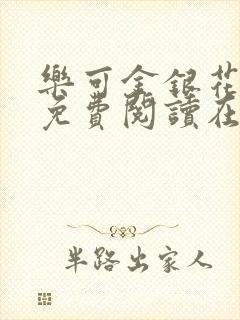 樂可金銀花
免費閱讀在
半路出家人